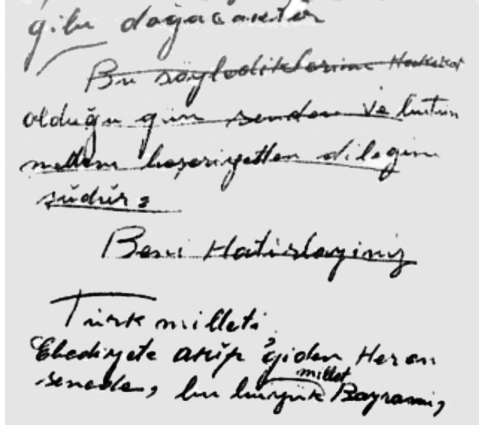 gibi doğacaktır
Bu söylediklerim Hakikat
olduğu gün senden ve bütün
medeni beşeriyetten dileğim
şudur:
Beni Hatırlayınız
Türk milleti
Ebediyete akıp giden Her on
millet
senede, bu büyük Bayramı,